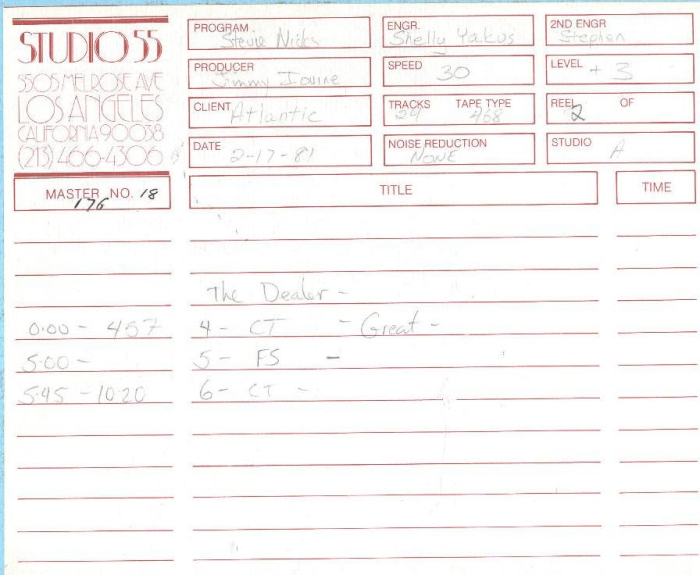 STUDIO 55
5505 MELROSE AVE
LOS ANGELES
CALIFORNIA 90038
(213) 466-4306
PROGRAM Stevie Nicks
ENGR. Shelly Yakus
2ND ENGR Stephen
PRODUCER Jimmy Iovine
SPEED 30
LEVEL +3
CLIENT Atlantic
TRACKS 24 TAPE TYPE 468
REEL 2 OF
DATE 2-17-81
NOISE REDUCTION NONE
STUDIO A
MASTER NO. 18
176
TITLE
TIME
The Dealer -
0:00 - 457 4 - CT - Great -
5:00 - 5 - FS -
5:45 - 10:20 6 - CT -